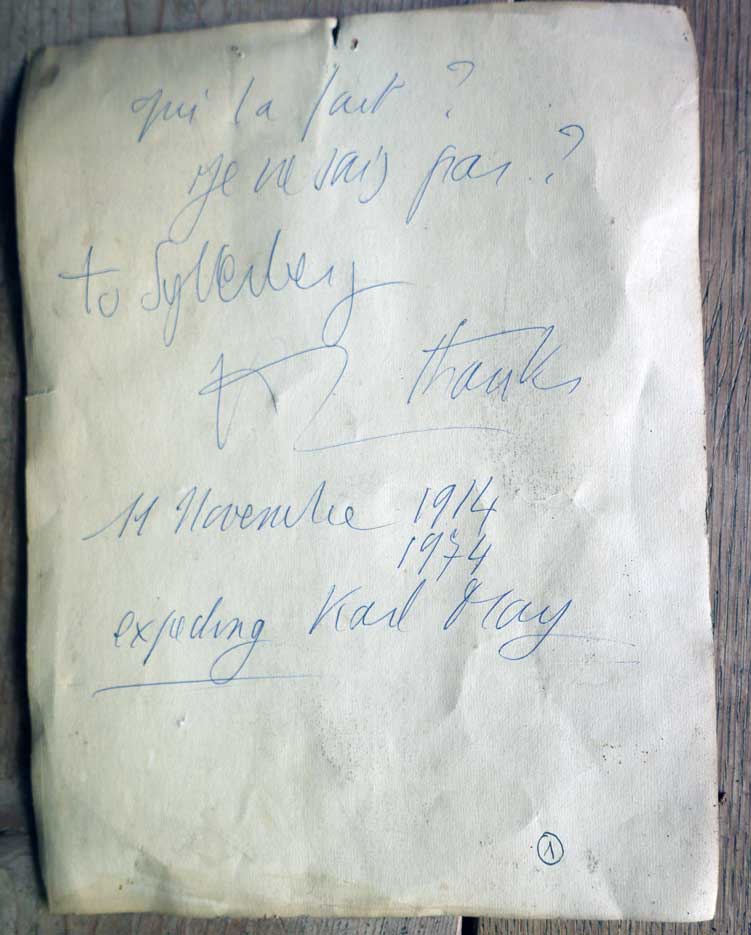 qui la fait ?
je ne sais pas ?
to Syberberg
thanks
11 Novembre 1914
1974
expecting Karl May
1